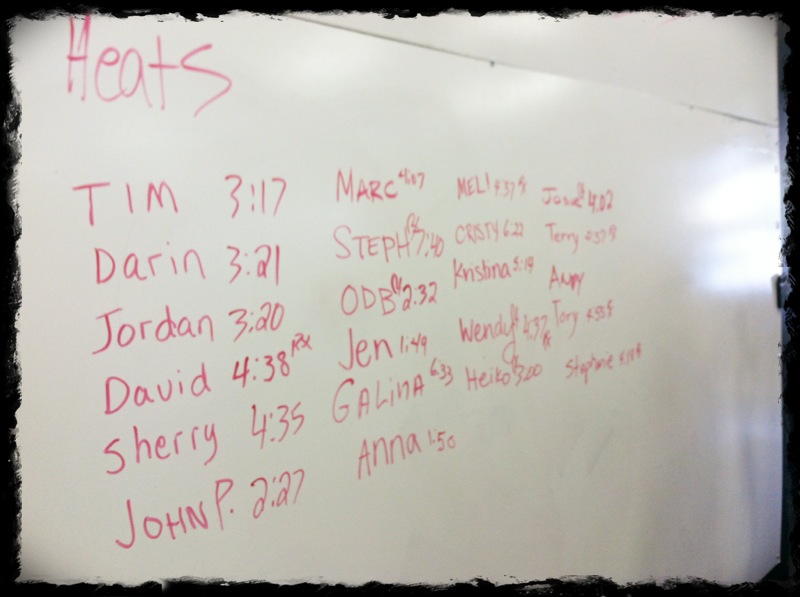 Heats
TIM 3:17
Darin 3:21
Jordan 3:20
David 4:38 Rx
Sherry 4:35
JOHN P. 2:27
MARC 4:17
STEPH Rx 7:40
ODB Rx 2:32
Jen 1:49
GALINA 6:33
Anna 1:50
MELI 4:37
CRISTY 6:22
Kristina 5:19
Wendy 4:37 Rx
Heiko Rx 3:00
4:02
Terry
Andy
Tory
Stephanie